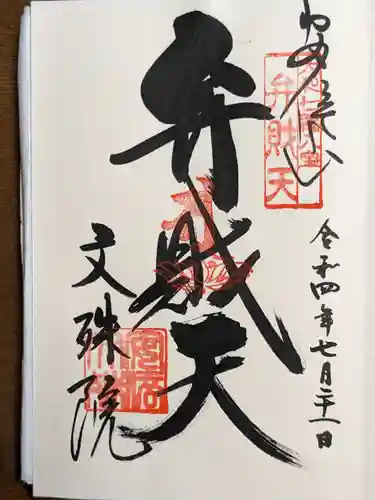 弁財天
弁財天
令和四年七月二十一日
文殊院